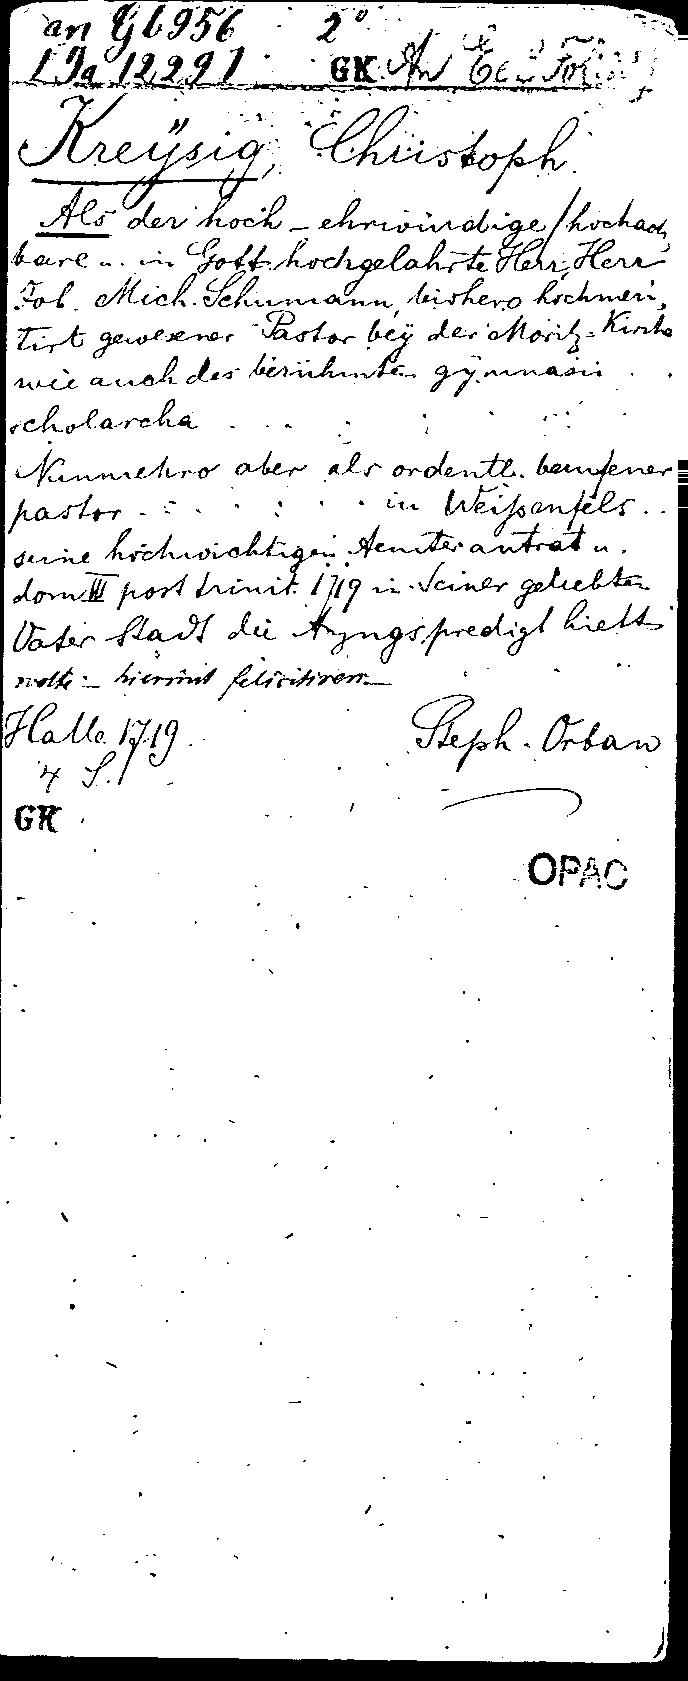 an Gb 956 2°
1 Ja 12291 GK An
Kreÿsig, Christoph
Als der hoch-ehrwürdige/hochacht,
bare u. in Gott hochgelahrte Herr, Herr
Joh. Mich. Schumann, bishero hochmeri,
tirt gewesener Pastor beÿ der Moritz-Kirche
wie auch des berühmten gymnasii . .
scholarcha . . . . . . .
Nunmehro aber als ordentl. beruffener
pastor . . . . . . in Weißenfels . .
seine hochwichtigen Aemter antrat u.
dom III post trinit. 1719 in Seiner geliebten
Vater Stadt die Anzugspredigt hielt
wollte - hiermit feliciren
Halle 1719. Steph. Orban
4 S.
GK
OPAC